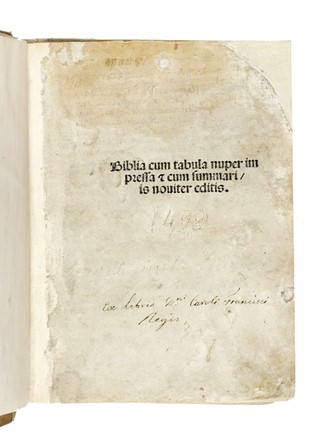 Biblia cum tabula nuper im
pressa ⁊ cum summari/
is noviter editis.
Ex libris D.ni Caroli Francisci
Regis